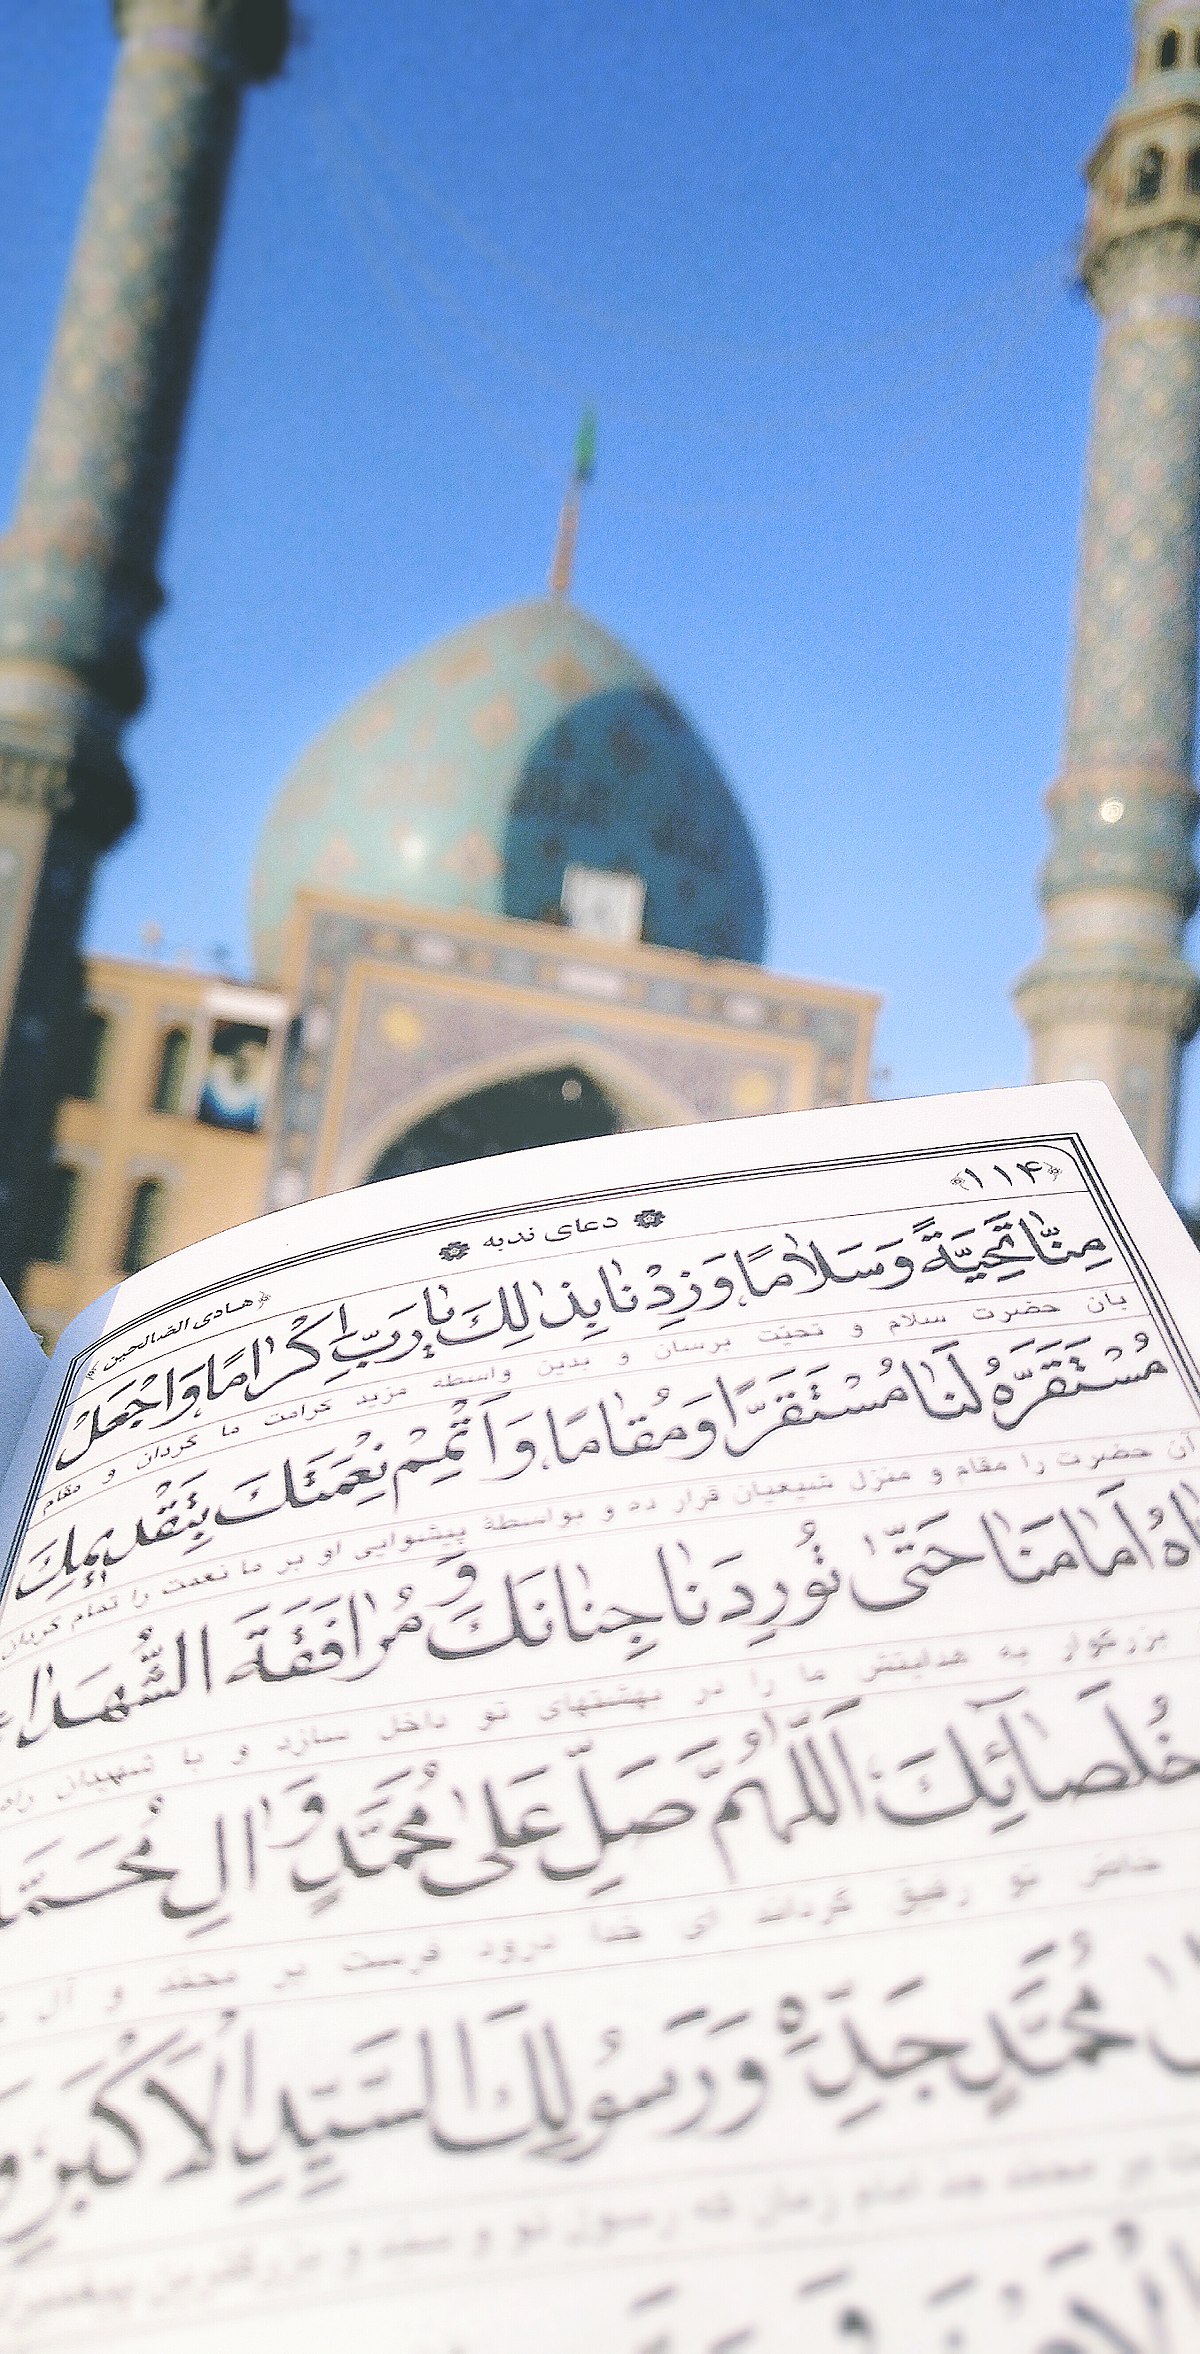 ﴿۱۱۴﴾
دعای ندبه
﴿هادی الضالحین﴾
مِنّٰا تَحِیَّةً وَسَلٰامًا وَزِدْنٰا بِذٰلِكَ یٰارَبِّ اِكْرٰامًا وَاجْعَلْ
بان حضرت سلام و تحیّت برسان و بدین واسطه مزید کرامت ما گردان و مقام
مُسْتَقَرَّهُ لَنٰا مُسْتَقَرًّا وَمُقٰامًا وَاَتْمِمْ نِعْمَتَكَ بِتَقْدیمِكَ
آن حضرت را مقام و منزل شیعیان قرار ده و بواسطهٔ پیشوایی او بر ما نعمت را تمام گردان
اِیّٰاهُ اَمٰامَنٰا حَتّٰى تُورِدَنٰا جِنٰانَكَ وَ مُرٰافَقَةَ الشُّهَدٰاءِ
بزرگوار به هدایتش ما را در بهشتهای تو داخل سازد و با شهیدان راه
خُلَصٰائِكَ اَللّٰهُمَّ صَلِّ عَلٰى مُحَمَّدٍ وَ اٰلِ مُحَمَّدٍ
خاص تو رفیق گرداند ای خدا درود فرست بر محمد و آل
مُحَمَّدٍ جَدِّهِ وَ رَسُولِكَ السَّیِّدِ الْاَكْبَرِ
بر محمد جد امام زمان که رسول تو و سید و بزرگترین پیغمبر